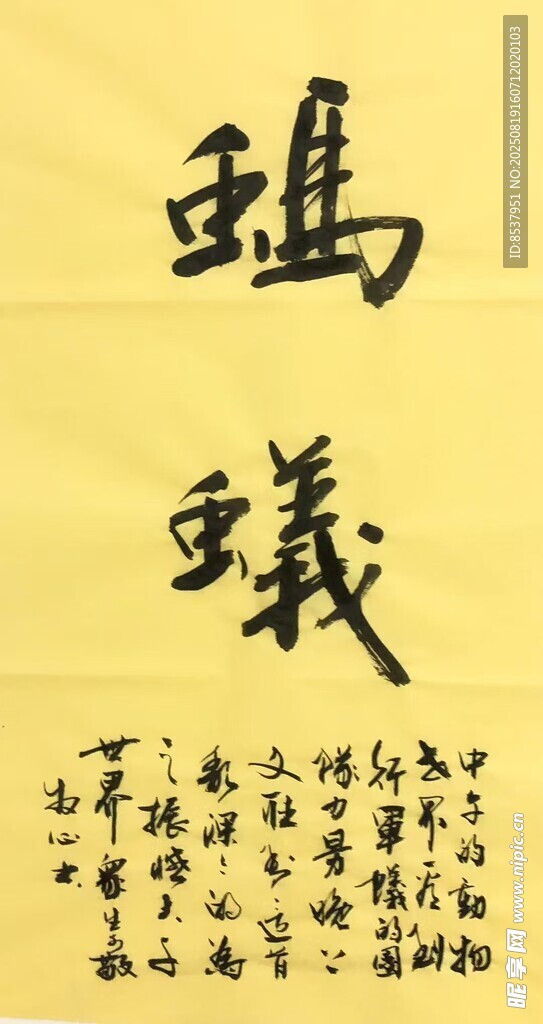 螞
蟻
中午的動物
世界看到
行軍蟻的團
隊力量晚上
又這首
歌深深的為
之振憾大千
世界眾生可敬
心书
ID:8537951 NO:20250819160712020103
昵享网 www.nipic.cn